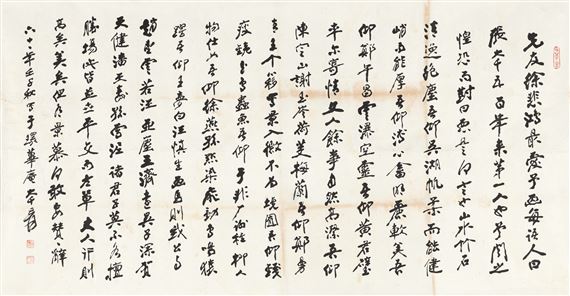 先友徐悲鴻最愛予画每語人曰
張大千五百年來第一人也予聞之
惶恐而對曰惡是何言也山水竹石
清逸絕塵吾仰吳湖帆柔而能健
峭而能厚吾仰溥心畬明麗軟美吾
仰鄭午昌雲瀑空靈吾仰黃君璧
率尔寄情文人餘事自然高潔吾仰
陳定山謝玉岑荷芰梅蘭吾仰鄭曼
青王个簃寫景入微不為境囿吾仰錢
瘦鐵花鳥蟲魚吾仰于非厂謝稚柳人
物仕女吾仰徐燕孫點染飛動鳥鳴猿
躍吾仰王夢白汪慎生画馬則我公与
趙望雲若汪亞塵王濟遠吳子深賀
天健潘天壽孫雪泥諸君子莫不各擅
勝場此皆並世平交而老輩丈人行則
高矣美矣但有景慕何敢妄贊一辭
六十一年壬子秋寫于環蓽庵大千爰